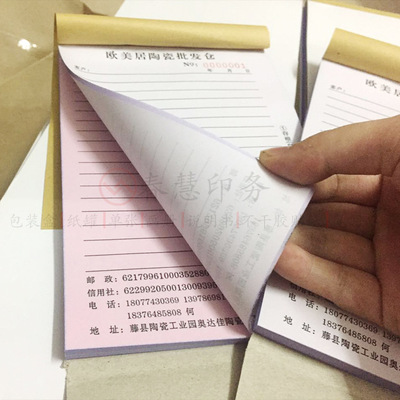 欧美居陶瓷批发仓
客户: No: 0000001
年 月 日
①存根
邮 政: 6217996100035288
信用社: 6229920500130093
电 话: 18077430369 1397869
18376485808 何
地 址: 藤县陶瓷工业园奥达佳陶瓷
欧美居陶
客户:
电 话: 18077430369
18376485808
地 址: 藤县陶瓷工业园奥
慧印务
包装盒|纸罐|单张|说明书|不干胶